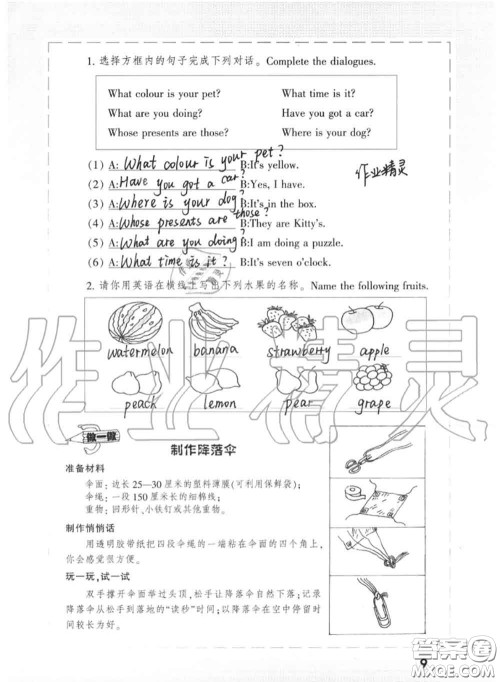 1. 选择方框内的句子完成下列对话。Complete the dialogues.
What colour is your pet? What time is it?
What are you doing? Have you got a car?
Whose presents are those? Where is your dog?
(1) A: What colour is your pet? B:It's yellow.
(2) A: Have you got a car? B:Yes, I have.
(3) A: Where is your dog? B:It's in the box.
(4) A: Whose presents are those? B:They are Kitty's.
(5) A: What are you doing? B:I am doing a puzzle.
(6) A: What time is it? B:It's seven o'clock.
作业精灵
2. 请你用英语在横线上写出下列水果的名称。Name the following fruits.
watermelon banana strawberry apple
peach lemon pear grape
作业精灵
做一做
制作降落伞
准备材料
伞面：边长 25—30 厘米的塑料薄膜(可利用保鲜袋)；
伞绳：一段 150 厘米长的细棉线；
重物：回形针、小铁钉或其他重物。
制作悄悄话
用透明胶带纸把四段伞绳的一端粘在伞面的四个角上，
你会感觉很方便。
玩一玩，试一试
双手撑开伞面举过头顶，松手让降落伞自然下落；记录
降落伞从松手到落地的“读秒”时间；以降落伞在空中停留时
间较长为好。
9
答案圈
MXQE.COM